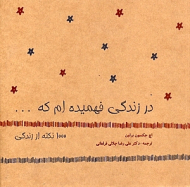 در زندگی فهمیده ام که ...
۱۰۰۰ نکته از زندگی
اچ جکسون براون
ترجمه: دکتر علی رضا جلالی فراهانی